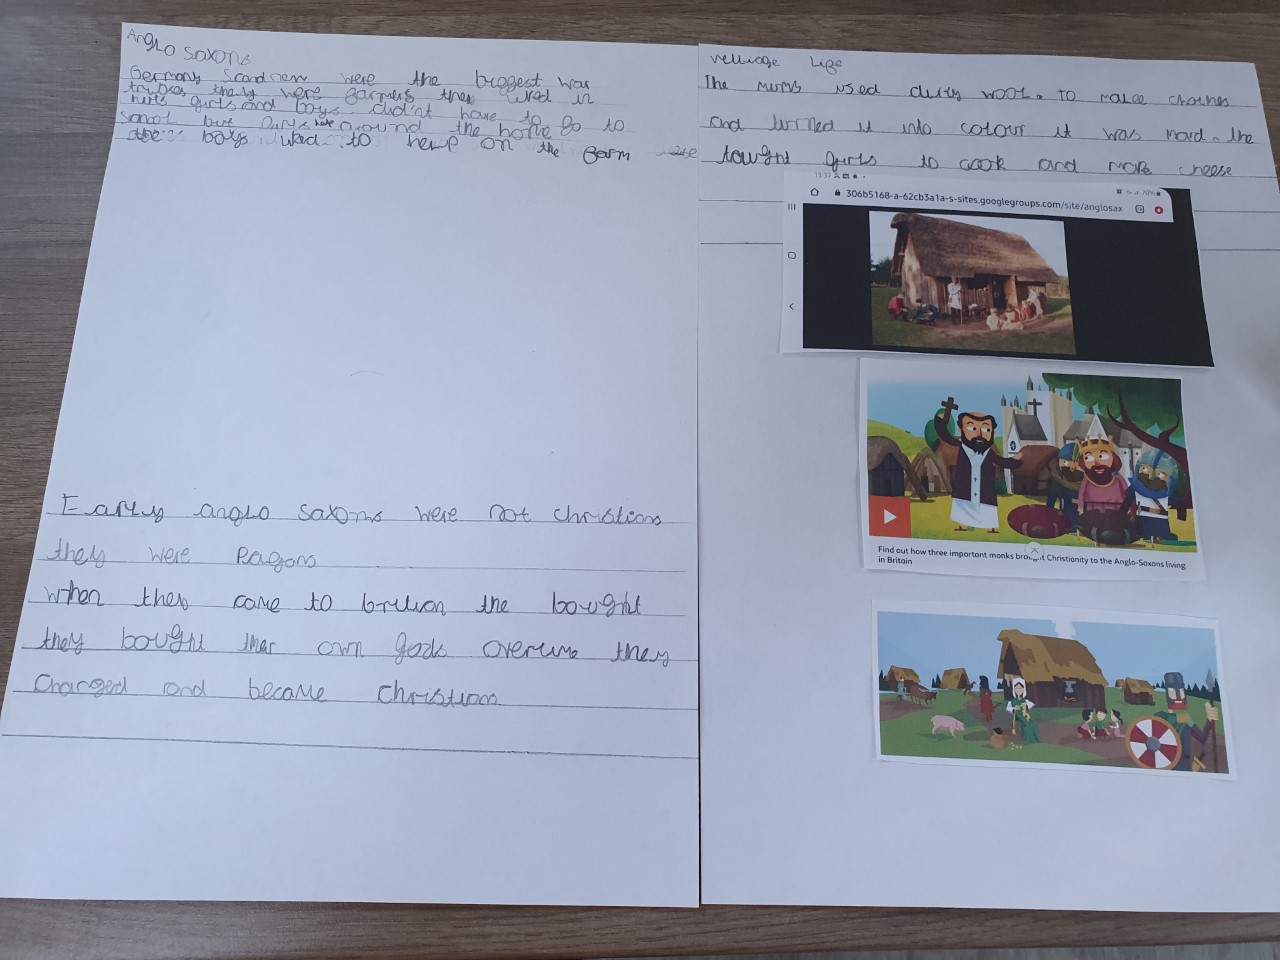 Anglo saxons
Germany Scandnew were the biggest war
tribes they were farmers they lived in
huts girls and boys didn't have to go to
school but girls have around the home
the boys had to help on the farm
Early anglo saxons were not christians
they were Pagans
when they came to the bought
they bought ther own gods overtime they
changed and became christians
velliage life
The mums used dirty wool. To make clothes
and turned it into colour it was mard. the
tought girls to cook and make cheese
13:37
70%
306b5168-a-62cb3a1a-s-sites.googlegroups.com/site/anglosax
Find out how three important monks brought Christianity to the Anglo-Saxons living
in Britain